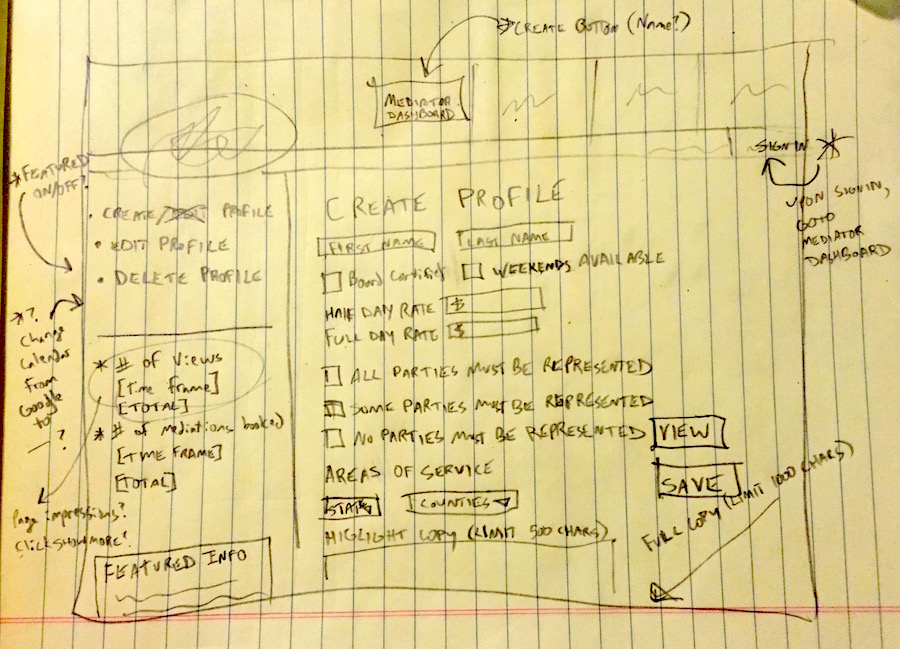 * CREATE BUTTON (Name?)
MEDIATOR
DASHBOARD
SIGN IN *
UPON SIGN IN,
GOTO
MEDIATOR
DASHBOARD
* FEATURED
ON/OFF?
• CREATE PROFILE
• EDIT PROFILE
• DELETE PROFILE
*?
Change
Calendar
From
Google
to
— ?
* # of Views
[Time frame]
[TOTAL]
* # of Mediations booked
[TIME FRAME]
[TOTAL]
Page impressions?
Click show more?
FEATURED INFO
CREATE PROFILE
FIRST NAME LAST NAME
Board Certified WEEKENDS AVAILABLE
HALF DAY RATE $
FULL DAY RATE $
ALL PARTIES MUST BE REPRESENTED
SOME PARTIES MUST BE REPRESENTED
NO PARTIES MUST BE REPRESENTED
VIEW
AREAS OF SERVICE
SAVE
STATE COUNTIES
HIGLIGHT COPY (LIMIT 500 CHARS)
FULL COPY (LIMIT 1000 CHARS)